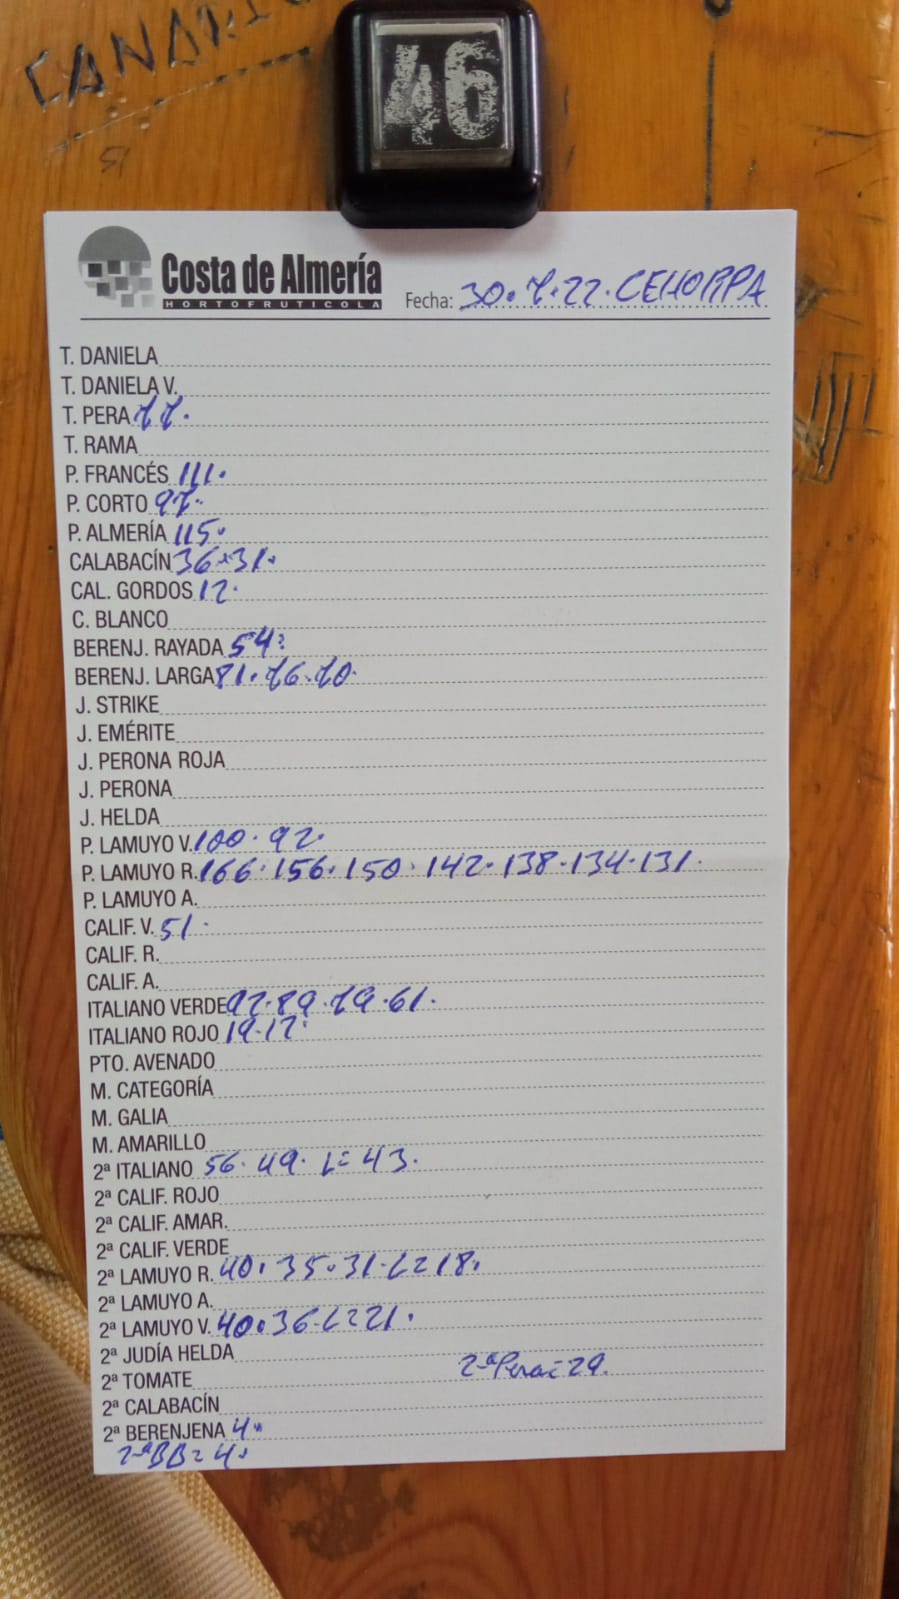 CANARI
46
Costa de Almería
HORTOFRUTICOLA
Fecha: 30.7.22.CEHORPA
T. DANIELA
T. DANIELA V.
T. PERA 77.
T. RAMA
P. FRANCÉS 111.
P. CORTO 97.
P. ALMERÍA 115.
CALABACÍN 36.31.
CAL. GORDOS 12.
C. BLANCO
BERENJ. RAYADA 54.
BERENJ. LARGA 81.76.70.
J. STRIKE
J. EMÉRITE
J. PERONA ROJA
J. PERONA
J. HELDA
P. LAMUYO V. 100.92.
P. LAMUYO R. 166.156.150.142.138.134.131.
P. LAMUYO A.
CALIF. V. 51.
CALIF. R.
CALIF. A.
ITALIANO VERDE 97.89.79.61.
ITALIANO ROJO 19.17.
PTO. AVENADO
M. CATEGORÍA
M. GALIA
M. AMARILLO
2ª ITALIANO 56.49. L=43.
2ª CALIF. ROJO
2ª CALIF. AMAR.
2ª CALIF. VERDE
2ª LAMUYO R. 40.35.31.L=18.
2ª LAMUYO A.
2ª LAMUYO V. 40.36.L=21.
2ª JUDÍA HELDA
2ª TOMATE 2ªPera=29.
2ª CALABACÍN
2ª BERENJENA 4.
2ªBB=4.